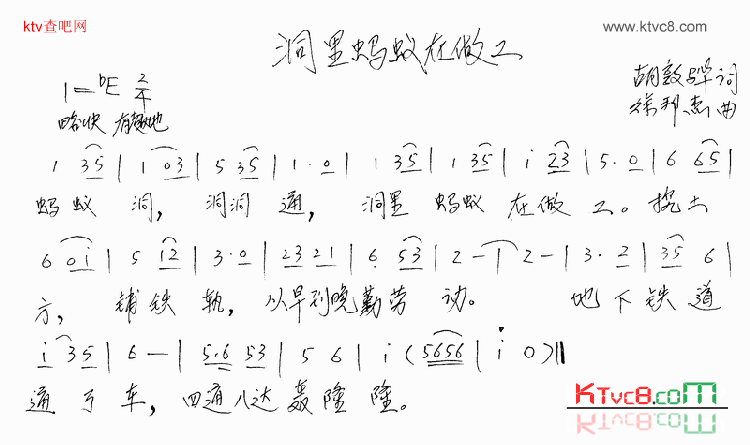 ktv查吧网 www.ktvc8.com
洞里蚂蚁在做工
1=bE 2/4 胡敦骅词
略快 有趣地 邦杰曲
1 35 | 1 03 | 5 35 | 1·0 | 1 35 | 1 35 | i 23 | 5·0 | 6 65 |
蚂蚁 洞， 洞洞 通， 洞里 蚂蚁 在做 工。挖土
6 0i | 5 i2 | 3·0 | 23 21 | 6 53 | 2 — | 2 — | 3·2 | 35 6 |
方， 铺铁 轨，从早到晚勤劳 动。 地下铁道
i 35 | 6 — | 5·6 53 | 5 6 | i (5656 | i 0) ‖
通了车，四通八达轰隆隆。
KTVC8.COM